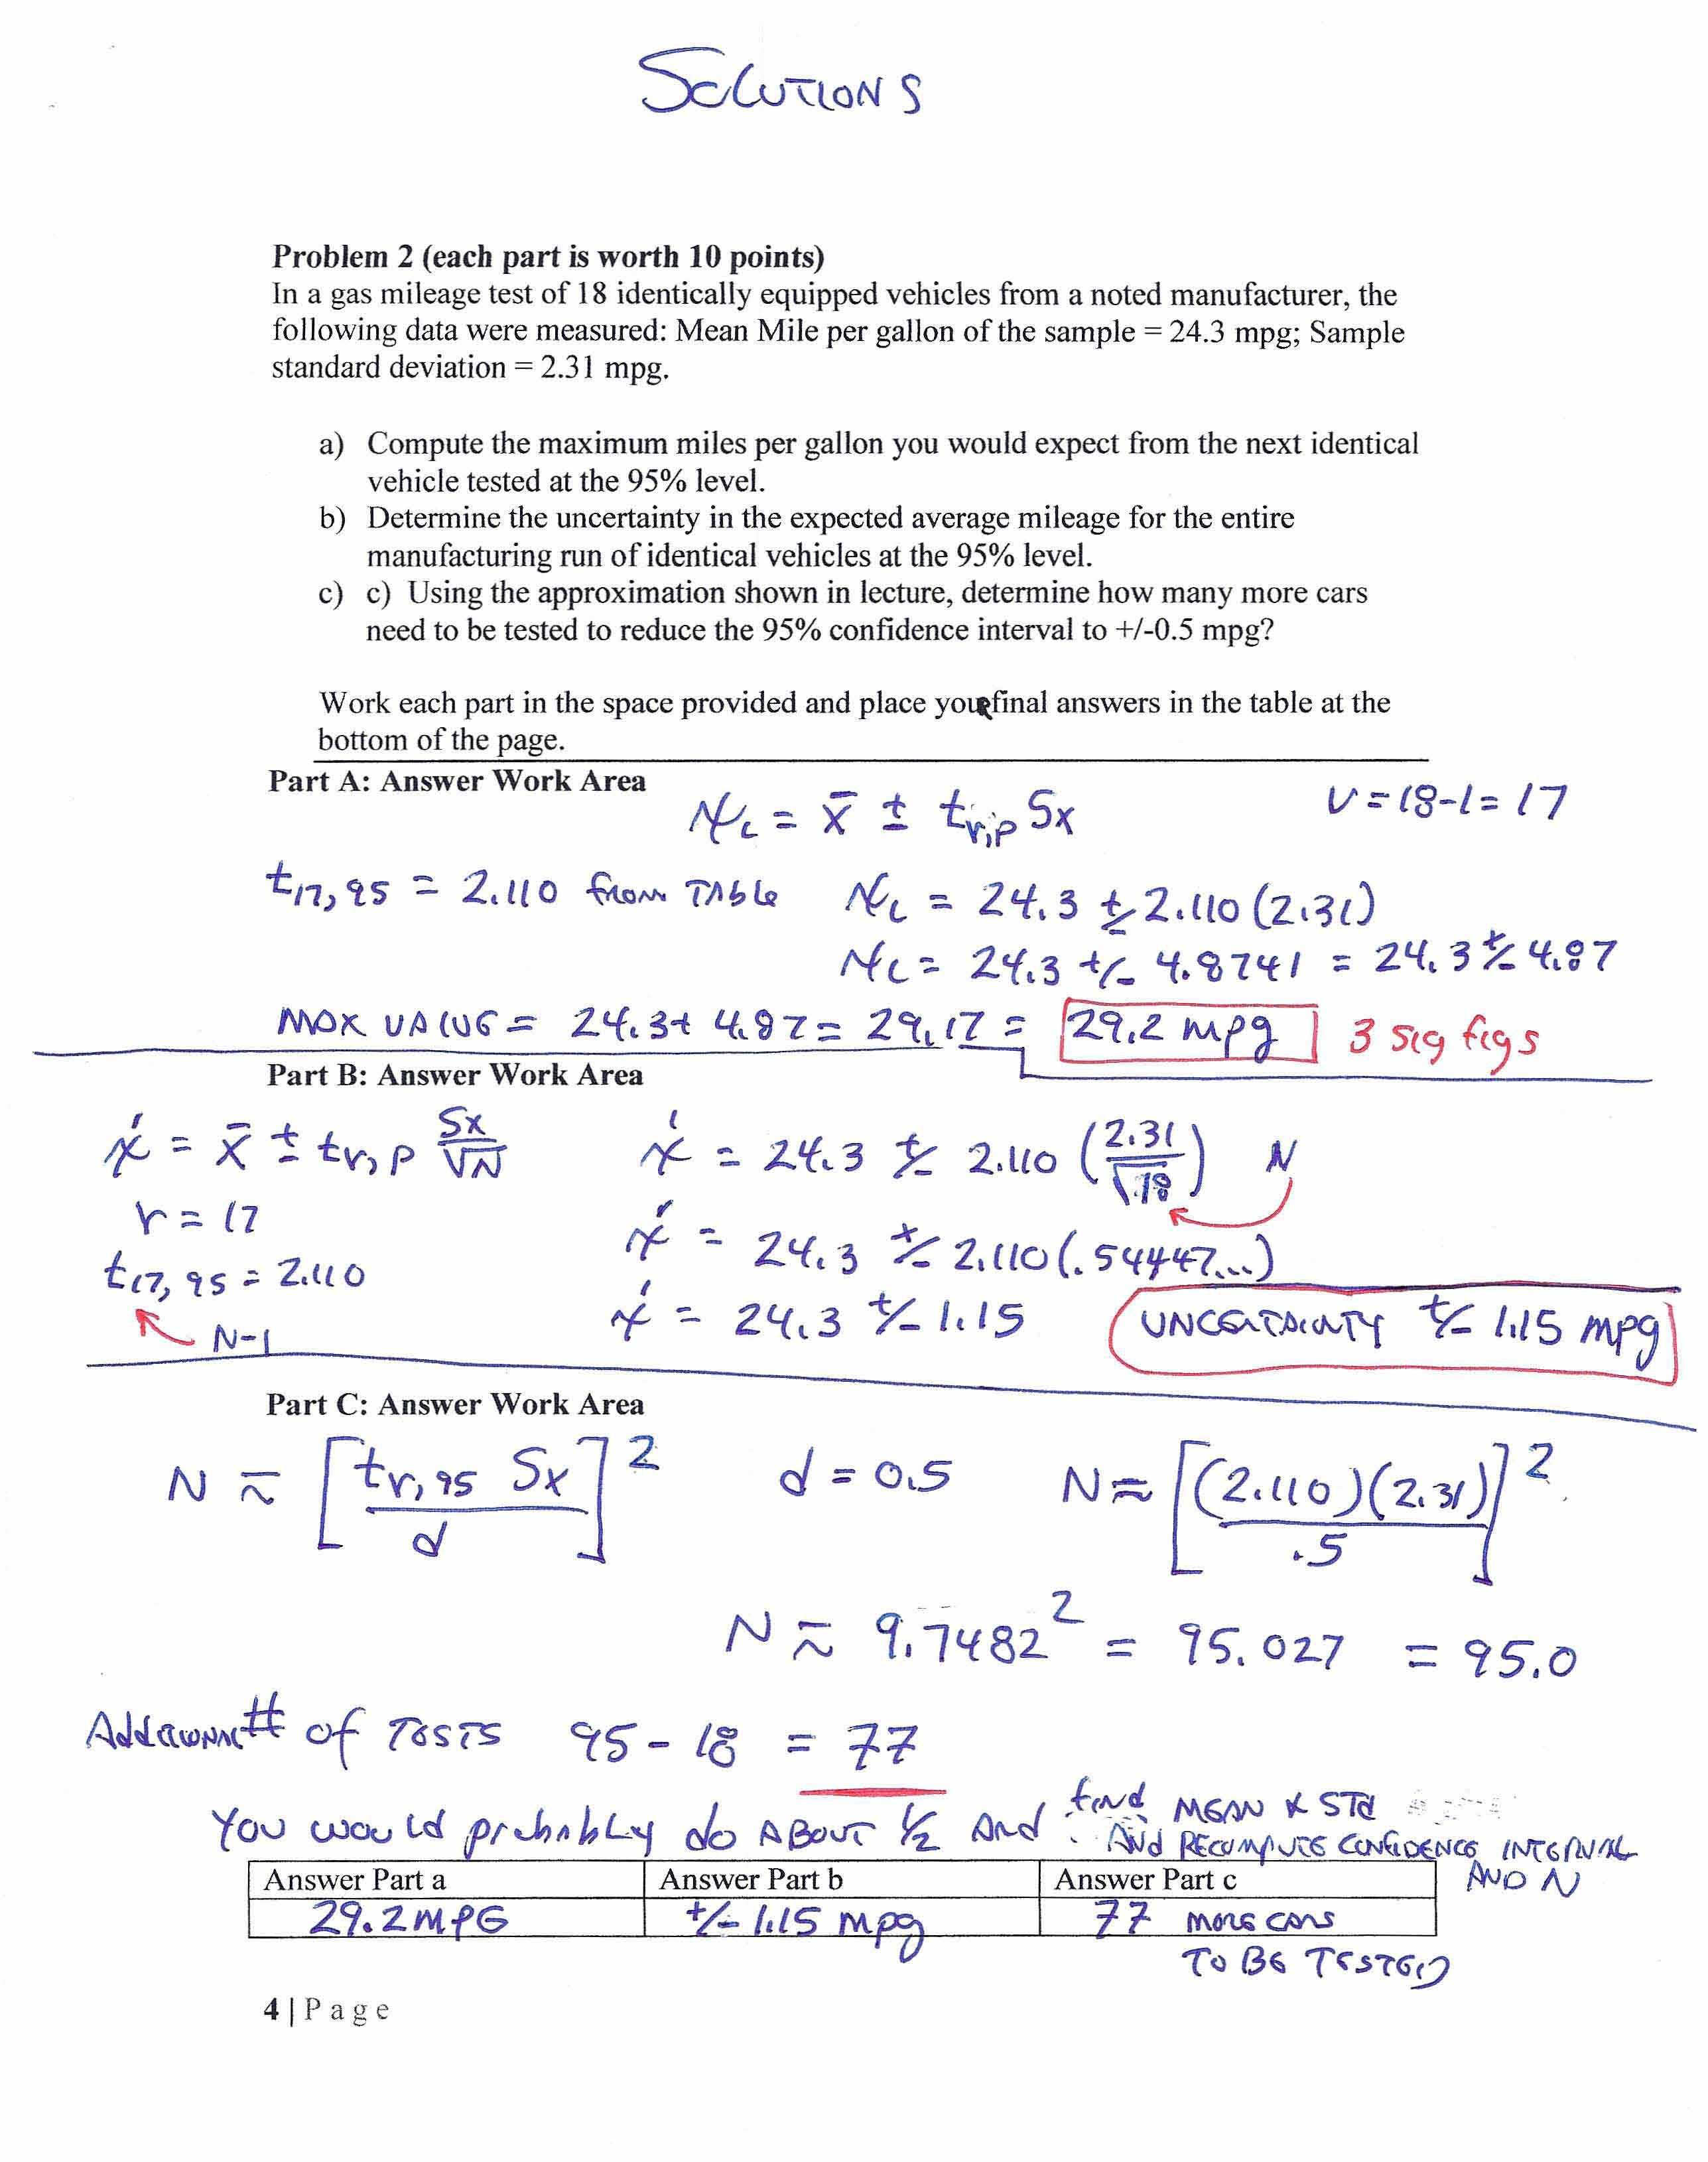 SOLUTIONS
Problem 2 (each part is worth 10 points)
In a gas mileage test of 18 identically equipped vehicles from a noted manufacturer, the
following data were measured: Mean Mile per gallon of the sample = 24.3 mpg; Sample
standard deviation = 2.31 mpg.
a) Compute the maximum miles per gallon you would expect from the next identical
vehicle tested at the 95% level.
b) Determine the uncertainty in the expected average mileage for the entire
manufacturing run of identical vehicles at the 95% level.
c) c) Using the approximation shown in lecture, determine how many more cars
need to be tested to reduce the 95% confidence interval to +/-0.5 mpg?
Work each part in the space provided and place your final answers in the table at the
bottom of the page.
Part A: Answer Work Area
x_i = x̄ ± t_ν,p Sx
ν = 18-1 = 17
t_17,95 = 2.110 from TABLE
x_i = 24.3 ± 2.110 (2.31)
x_i = 24.3 +/- 4.8741 = 24.3 +/- 4.87
MAX VALUE = 24.3 + 4.87 = 29.17 = 29.2 mpg 3 sig figs
Part B: Answer Work Area
x' = x̄ ± t_ν,p Sx/√N
x' = 24.3 +/- 2.110 (2.31/√18) N
ν = 17
x' = 24.3 +/- 2.110 (.54447...)
t_17,95 = 2.110
x' = 24.3 +/- 1.15
UNCERTAINTY +/- 1.15 mpg
N-1
Part C: Answer Work Area
N ≈ [t_ν,95 Sx / d]²
d = 0.5
N ≈ [(2.110)(2.31) / .5]²
N ≈ 9.7482² = 95.027 = 95.0
Additional # of TESTS 95 - 18 = 77
You would probably do ABOUT 1/2 And find MEAN & STd
And RECOMPUTE CONFIDENCE INTERVAL
AND N
Answer Part a Answer Part b Answer Part c
29.2 MPG +/- 1.15 mpg 77 more cars
TO BE TESTED
4 | P a g e